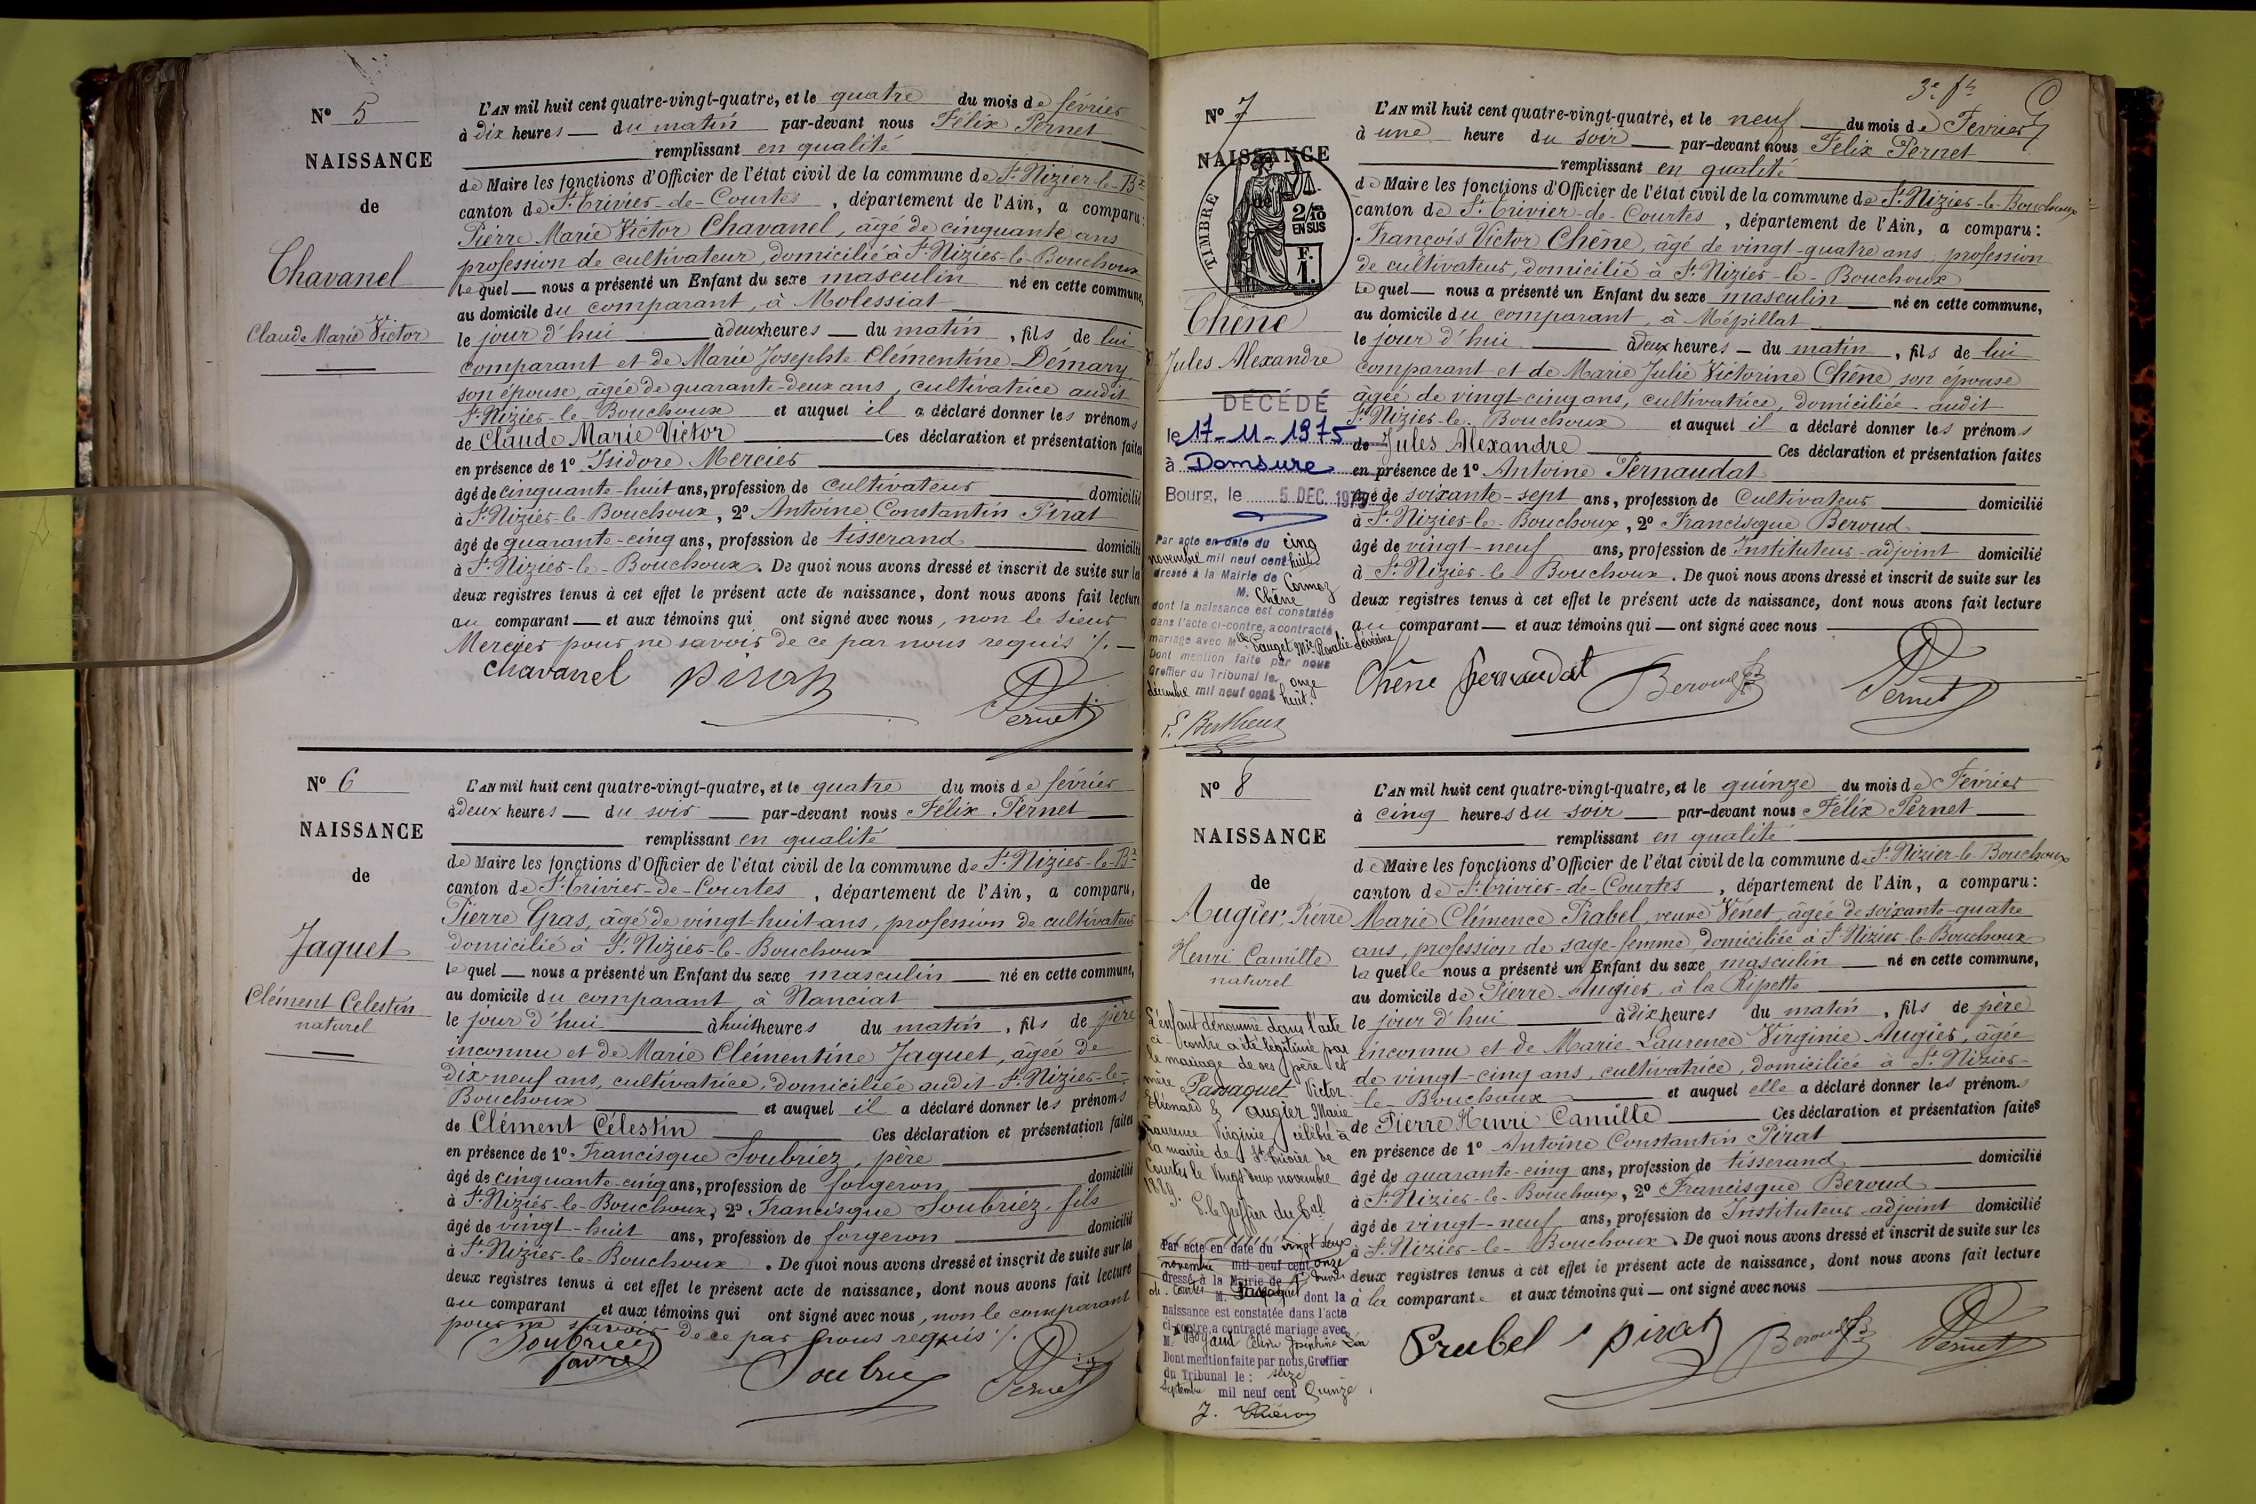 N° 5
NAISSANCE
de
Chavanel
Claude Marie Victor
L'AN mil huit cent quatre-vingt-quatre, et le quatre du mois de février
à dix heures du matin par-devant nous Félix Pernet
remplissant en qualité
de Maire les fonctions d'Officier de l'état civil de la commune de St Nizier-le-Bx
canton de St Trivier-de-Courtes, département de l'Ain, a comparu:
Pierre Marie Victor Chavanel, âgé de cinquante ans
profession de cultivateur, domicilié à St Nizier-le-Bouchoux
lequel nous a présenté un Enfant du sexe masculin né en cette commune,
au domicile du comparant, à Molessiat
le jour d'hui à deux heures du matin, fils de lui
comparant et de Marie Josephte Clémentine Démary
son épouse, âgée de quarante-deux ans, cultivatrice audit
St Nizier-le-Bouchoux et auquel il a déclaré donner les prénoms
de Claude Marie Victor Ces déclaration et présentation faites
en présence de 1° Isidore Mercier
âgé de cinquante-huit ans, profession de cultivateur domicilié
à St Nizier-le-Bouchoux, 2° Antoine Constantin Pirat
âgé de quarante-cinq ans, profession de tisserand domicilié
à St Nizier-le-Bouchoux. De quoi nous avons dressé et inscrit de suite sur les
deux registres tenus à cet effet le présent acte de naissance, dont nous avons fait lecture
au comparant et aux témoins qui ont signé avec nous, non le sieur
Mercier pour ne savoir de ce par nous requis ./.
chavanel pirat Pernet
N° 6
NAISSANCE
de
Jaquet
Clément Celestin
naturel
L'AN mil huit cent quatre-vingt-quatre, et le quatre du mois de février
à deux heures du soir par-devant nous Félix Pernet
remplissant en qualité
de Maire les fonctions d'Officier de l'état civil de la commune de St Nizier-le-Bx
canton de St Trivier-de-Courtes, département de l'Ain, a comparu,
Pierre Gras, âgé de vingt-huit ans, profession de cultivateur
domicilié à St Nizier-le-Bouchoux
lequel nous a présenté un Enfant du sexe masculin né en cette commune,
au domicile du comparant, à Nanciat
le jour d'hui à huit heures du matin, fils de père
inconnu et de Marie Clémentine Jaquet, âgée de
dix-neuf ans, cultivatrice, domiciliée audit St Nizier-le-
Bouchoux et auquel il a déclaré donner les prénoms
de Clément Célestin Ces déclaration et présentation faites
en présence de 1° Francisque Soubriez, père
âgé de cinquante-cinq ans, profession de forgeron domicilié
à St Nizier-le-Bouchoux, 2° Francisque Soubriez, fils
âgé de vingt-huit ans, profession de forgeron domicilié
à St Nizier-le-Bouchoux. De quoi nous avons dressé et inscrit de suite sur les
deux registres tenus à cet effet le présent acte de naissance, dont nous avons fait lecture
au comparant et aux témoins qui ont signé avec nous, non le comparant
pour ne savoir de ce par nous requis ./.
Soubriez Soubriez Pernet
3e ft
N° 7
NAISSANCE
de
TIMBRE
2/10 EN SUS
F. 1.
Chêne
Jules Alexandre
DÉCÉDÉ
le 17-11-1975
à Domsure
Bourg, le 5 DEC. 1975
Par acte en date du cinq
novembre mil neuf cent huit
dressé à la Mairie de Cormoz
M. Chêne
dont la naissance est constatée
dans l'acte ci-contre, a contracté
mariage avec Mlle Pauget Mie Rosalie Séverine
Dont mention faite par nous
Greffier du Tribunal le onze
décembre mil neuf cent huit.
E. Berthieux
L'AN mil huit cent quatre-vingt-quatre, et le neuf du mois de Février
à une heure du soir par-devant nous Félix Pernet
remplissant en qualité
de Maire les fonctions d'Officier de l'état civil de la commune de St Nizier-le-Bouchoux
canton de St Trivier-de-Courtes, département de l'Ain, a comparu:
François Victor Chêne, âgé de vingt-quatre ans, profession
de cultivateur, domicilié à St Nizier-le-Bouchoux
lequel nous a présenté un Enfant du sexe masculin né en cette commune,
au domicile du comparant, à Mépillat
le jour d'hui à deux heures du matin, fils de lui
comparant et de Marie Julie Victorine Chêne, son épouse
âgée de vingt-cinq ans, cultivatrice, domiciliée audit
St Nizier-le-Bouchoux et auquel il a déclaré donner les prénoms
de Jules Alexandre Ces déclaration et présentation faites
en présence de 1° Antoine Pernaudat
âgé de soixante-sept ans, profession de Cultivateur domicilié
à St Nizier-le-Bouchoux, 2° Francisque Beroud
âgé de vingt-neuf ans, profession de Instituteur-adjoint domicilié
à St Nizier-le-Bouchoux. De quoi nous avons dressé et inscrit de suite sur les
deux registres tenus à cet effet le présent acte de naissance, dont nous avons fait lecture
au comparant et aux témoins qui ont signé avec nous
Chêne pernaudat Beroud Pernet
N° 8
NAISSANCE
de
Augier, Pierre
Henri Camille
naturel
L'enfant dénommé dans l'acte
ci-contre a été légitimé par
le mariage de ses père et
mère Passaquet Victor
Léonard & Augier Marie
Laurence Virginie célébré à
la mairie de St Trivier de
Courtes le vingt deux novembre
1889.
P. le Greffier du Tal
Par acte en date du vingt deux
novembre mil neuf cent onze
dressé à la Mairie de St Trivier
de Courtes M. Passaquet dont la
naissance est constatée dans l'acte
ci-contre, a contracté mariage avec
M. Joséphine
Dont mention faite par nous, Greffier
du Tribunal le: seize
Septembre mil neuf cent Quinze
L'AN mil huit cent quatre-vingt-quatre, et le quinze du mois de Février
à cinq heures du soir par-devant nous Félix Pernet
remplissant en qualité
de Maire les fonctions d'Officier de l'état civil de la commune de St Nizier-le-Bouchoux
canton de St Trivier-de-Courtes, département de l'Ain, a comparu:
Marie Clémence Prabel, veuve Venet, âgée de soixante-quatre
ans, profession de sage-femme, domiciliée à St Nizier-le-Bouchoux
laquelle nous a présenté un Enfant du sexe masculin né en cette commune,
au domicile de Pierre Augier, à la Ripette
le jour d'hui à dix heures du matin, fils de père
inconnu et de Marie-Laurence Virginie Augier, âgée
de vingt-cinq ans, cultivatrice, domiciliée à St Nizier-
le-Bouchoux et auquel elle a déclaré donner les prénoms
de Pierre Henri Camille Ces déclaration et présentation faites
en présence de 1° Antoine Constantin Pirat
âgé de quarante-cinq ans, profession de tisserand domicilié
à St Nizier-le-Bouchoux, 2° Francisque Beroud
âgé de vingt-neuf ans, profession de Instituteur-adjoint domicilié
à St Nizier-le-Bouchoux. De quoi nous avons dressé et inscrit de suite sur les
deux registres tenus à cet effet le présent acte de naissance, dont nous avons fait lecture
à la comparante et aux témoins qui ont signé avec nous
Prubel pirat Beroud Pernet